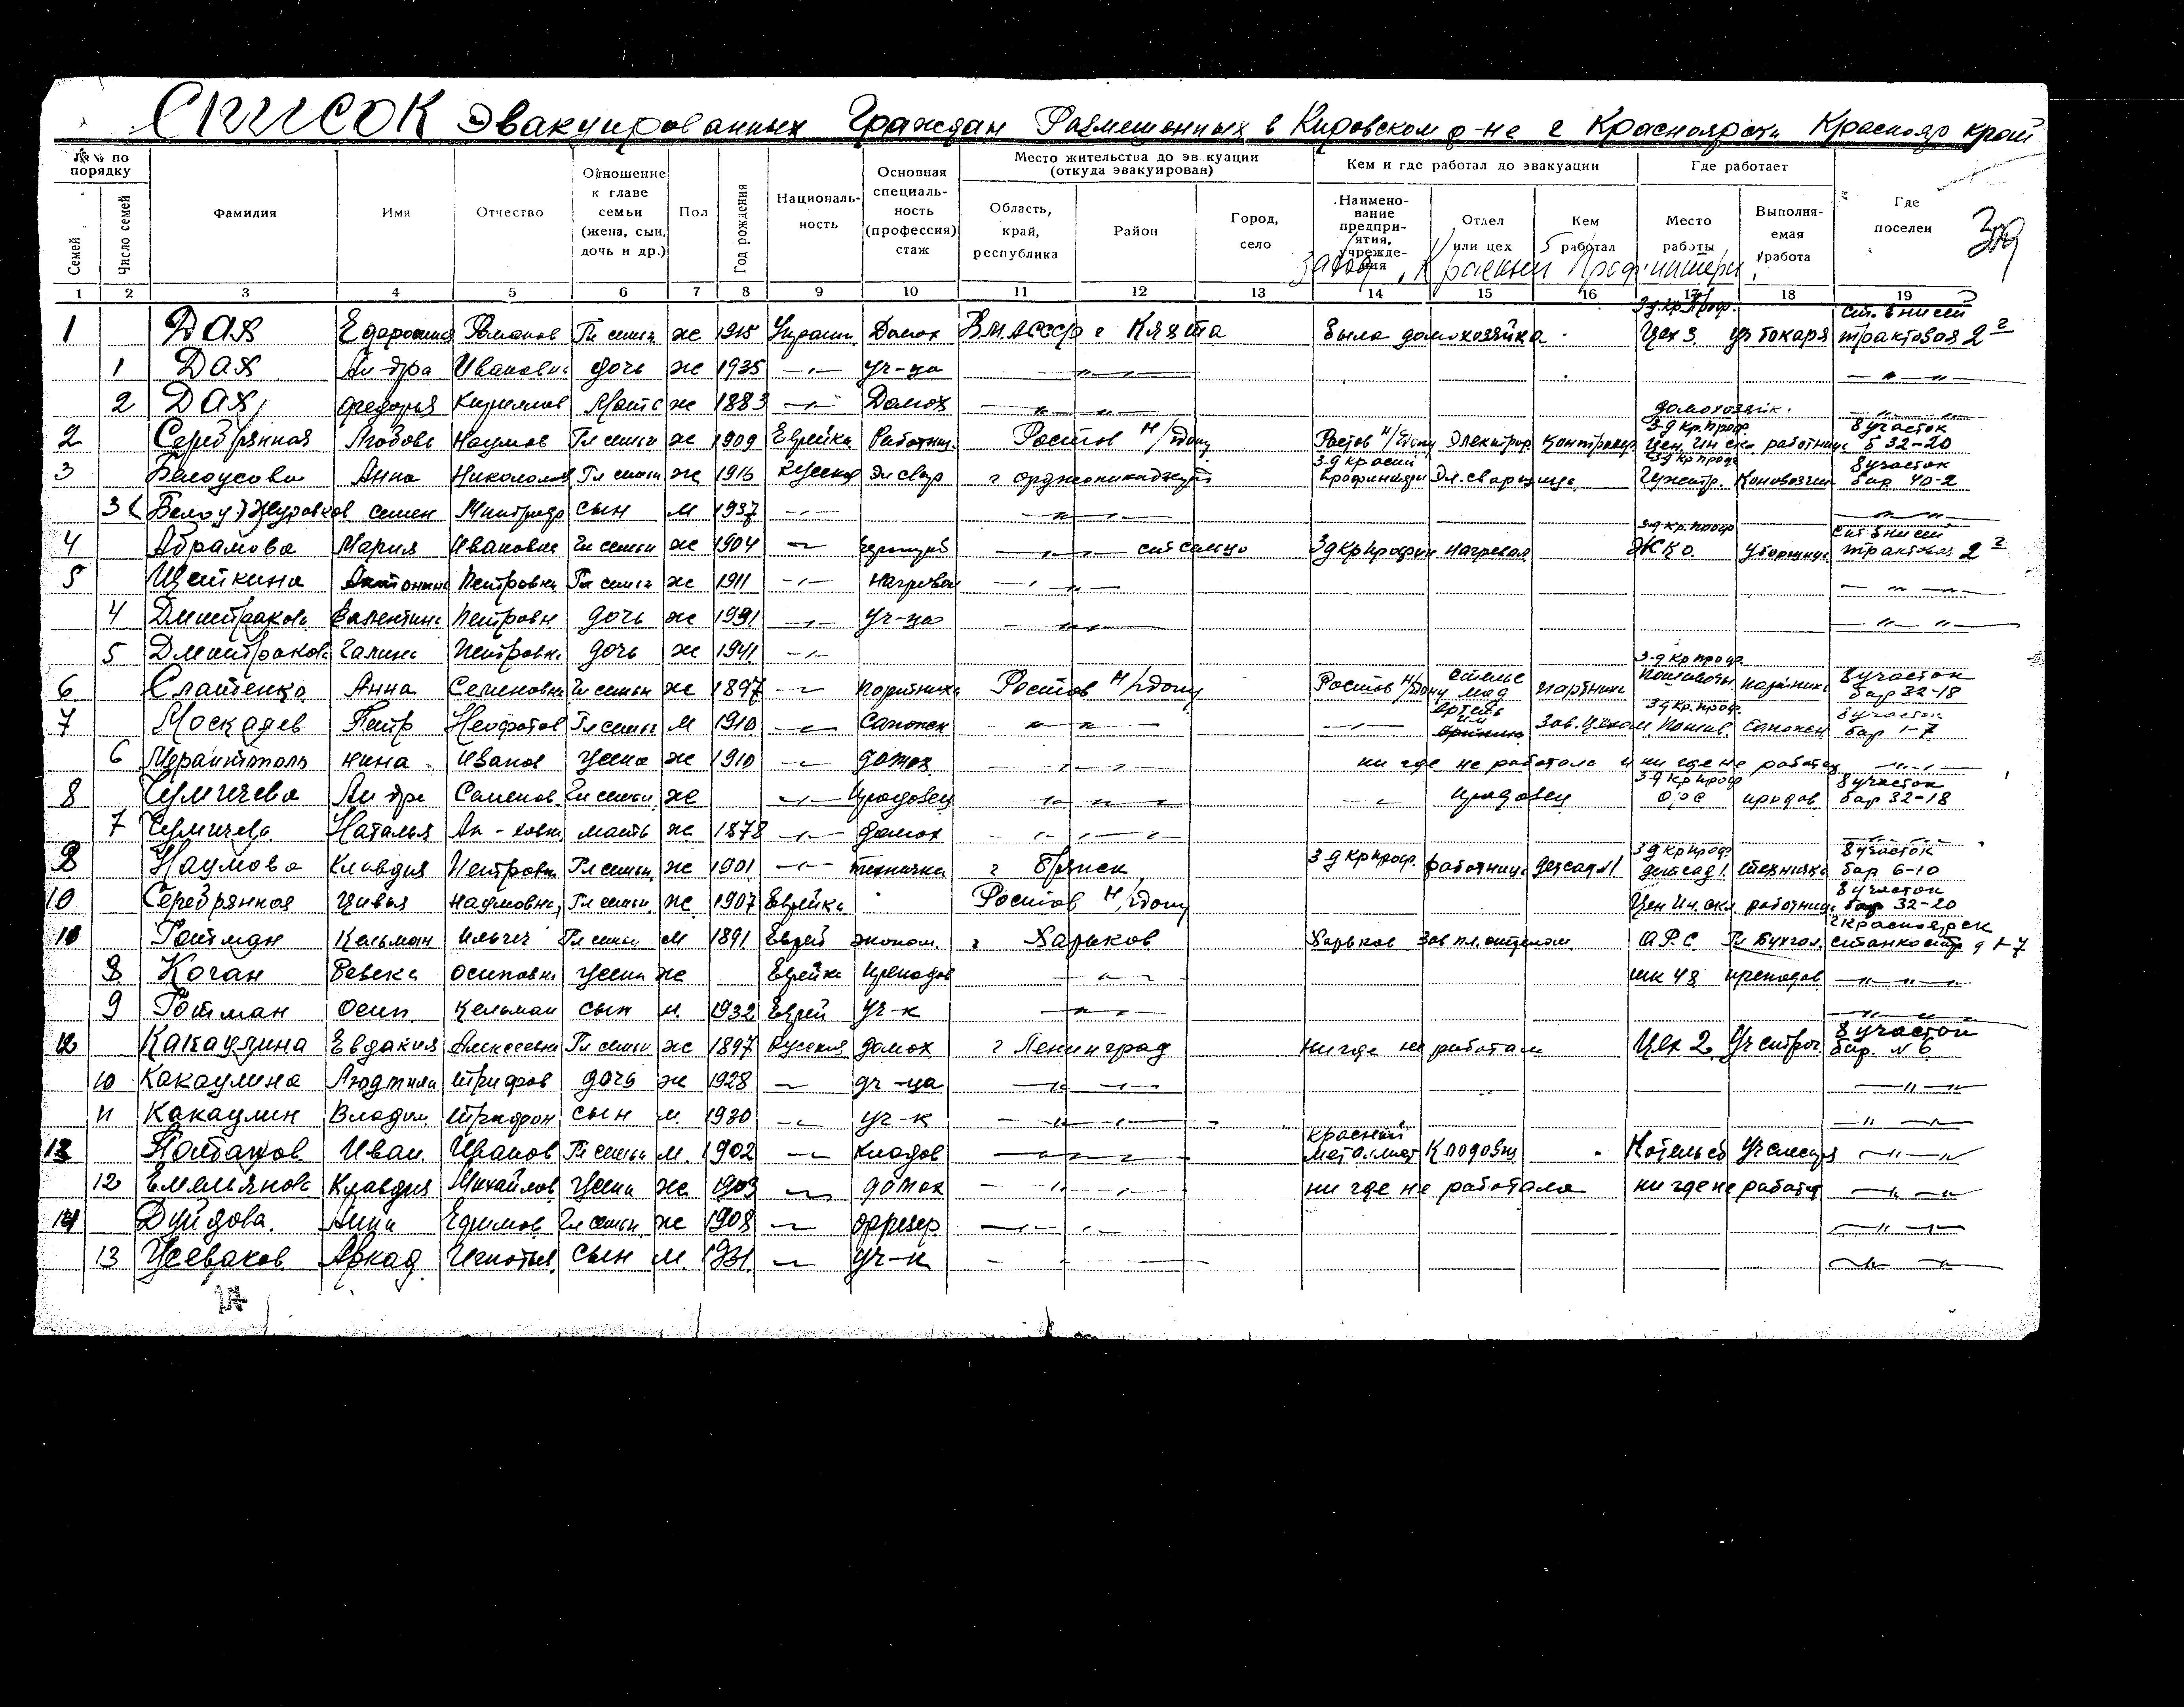 Список Эвакуированных Граждан Размещенных в Кировском р-не г Красноярска Краснояр край
№№ по порядку
Место жительства до эвакуации (откуда эвакуирован)
Кем и где работал до эвакуации
Где работает
Семей Число семей Фамилия Имя Отчество Отношение к главе семьи (жена, сын, дочь и др.) Пол Год рождения Националь-ность Основная специаль-ность (профессия) стаж Область, край, республика Район Город, село Наимено-вание предпри-ятия, учрежде-ния Отдел или цех Кем работал Место работы Выполня-емая работа Где поселен
завод "Красный Профинтерн"
1 2 3 4 5 6 7 8 9 10 11 12 13 14 15 16 17 18 19
1 Дах Романов Гл семьи ж 1915 Украин Домох В.М.АССР г Кяхта была домохозяйка З-д Кр.Проф. Цех 3 уч токаря трактовая 2
1 Дах Ал-дра Ивановна дочь ж 1935 —"— уч-ца —"—"— —"—"—
2 Дах Федоръя Кириллов Мать ж 1883 —"— Домох —"—"— домохозяйк. —"—"—
2 Серебрянная Любовь Наумов Гл семьи ж 1909 Еврейка Работниц. Ростов н/Дону Ростов н/Дону Электрор. Контролер З-д Кр.Проф работница 8 участок б 32-20
3 Белоусова Анна Николаев Гл семьи ж 1916 Русская Эл свар г орджоникидзеград З-д красный профинтерн Эл. сварщица З-д Кр проф Гужтр. Коновозчик 8 участок бар 40-2
3 Белоу Журавков семен Дмитрвдр сын м 1937 —"— —"—"— —"—"—
4 Абрамова Мария Ивановна Гл семьи ж 1904 —"— —"—"— З-д Кр профин нагревал З-д кр. проф ЖКО. уборщица трактовая 2
5 Щеткина Антонина Петровна Гл семьи ж 1911 —"— нагревал —"—"— —"—"—
4 Дмитракова Валентина Петровн дочь ж 1931 —"— уч-ца —"—"— —"—"—
5 Дмитракова Галина Петровна дочь ж 1941 —"—
6 Слатенко Анна Семеновна Гл семьи ж 1897 —"— портниха Ростов н/Дону Ростов н/Дону ателье мод партниха З-д Кр проф портниха 8 участок бар 32-18
7 Москалев Петр Неофотов Гл семьи м 1910 —"— Сапожн —"—"— —"— Артель им Зав.цехом З-д Кр. проф. Пошив. Сапожн 8 участок бар 1-7
6 нина Иванов жена ж 1910 —"— домох —"—"— ни где не работала и ни где не работает —"—"—
8 Чумичева Ал-дра Семенов. Гл семьи ж —"— Продовец —"—"— —"— продовец З-д Кр проф ОРС продов. 8 участок бар 32-18
7 Чумичева Наталья мать ж 1878 —"— домох —"—"— —"—"—
9 Наумова Клавдия Петровн Гл семьи ж 1901 —"— техничка г Брянск З-д Кр проф. работница детсад №1 З-д Кр проф. детсад 1 техничка 8 участок бар 6-10
10 Серебрянная Цивья Наумовна Гл семьи ж 1907 Еврейка Ростов н/Дону работница 8 участок бар 32-20
10 Готман Кельман Ильич Гл семьи м 1891 Еврей эконом. г Харьков Харьков Зав пл.отделом О.Р.С. Гл Бухгал. г красноярск станкостр д 1-7
8 Коган Ревека Осиповна жена ж Еврейка преподов —"—"— шк 48 преподов —"—"—
9 Готман Осип Кельман сын м 1932 Еврей уч-к —"—"— —"—"—
12 Какаулина Евдакия Алексеевна Гл семьи ж 1897 Русская домох г Ленинград ни где не работала Цех 2 8 участок бар. №6
10 Какаулина Людмила Трифов дочь ж 1928 —"— уч-ца —"—"— —"—"—
11 Какаулин Владим. Трифон сын м. 1930 —"— уч-к —"—"— —"—"—
13 Иван. Иванов Гл семьи м. 1902 —"— кладов —"—"— Красный металлист Кладовщ Котельн уч слесаря —"—"—
12 Емельянова Клавдия Михайлов жена ж 1903 —"— домох —"—"— ни где не работала ни где не работа —"—"—
14 Дуйдова Анна Ефимов Гл семьи ж 1908 —"— фрезер. —"—"— —"—"—
13 Аркад. Игнатья сын м. 1931 —"— уч-к —"—"— —"—"—